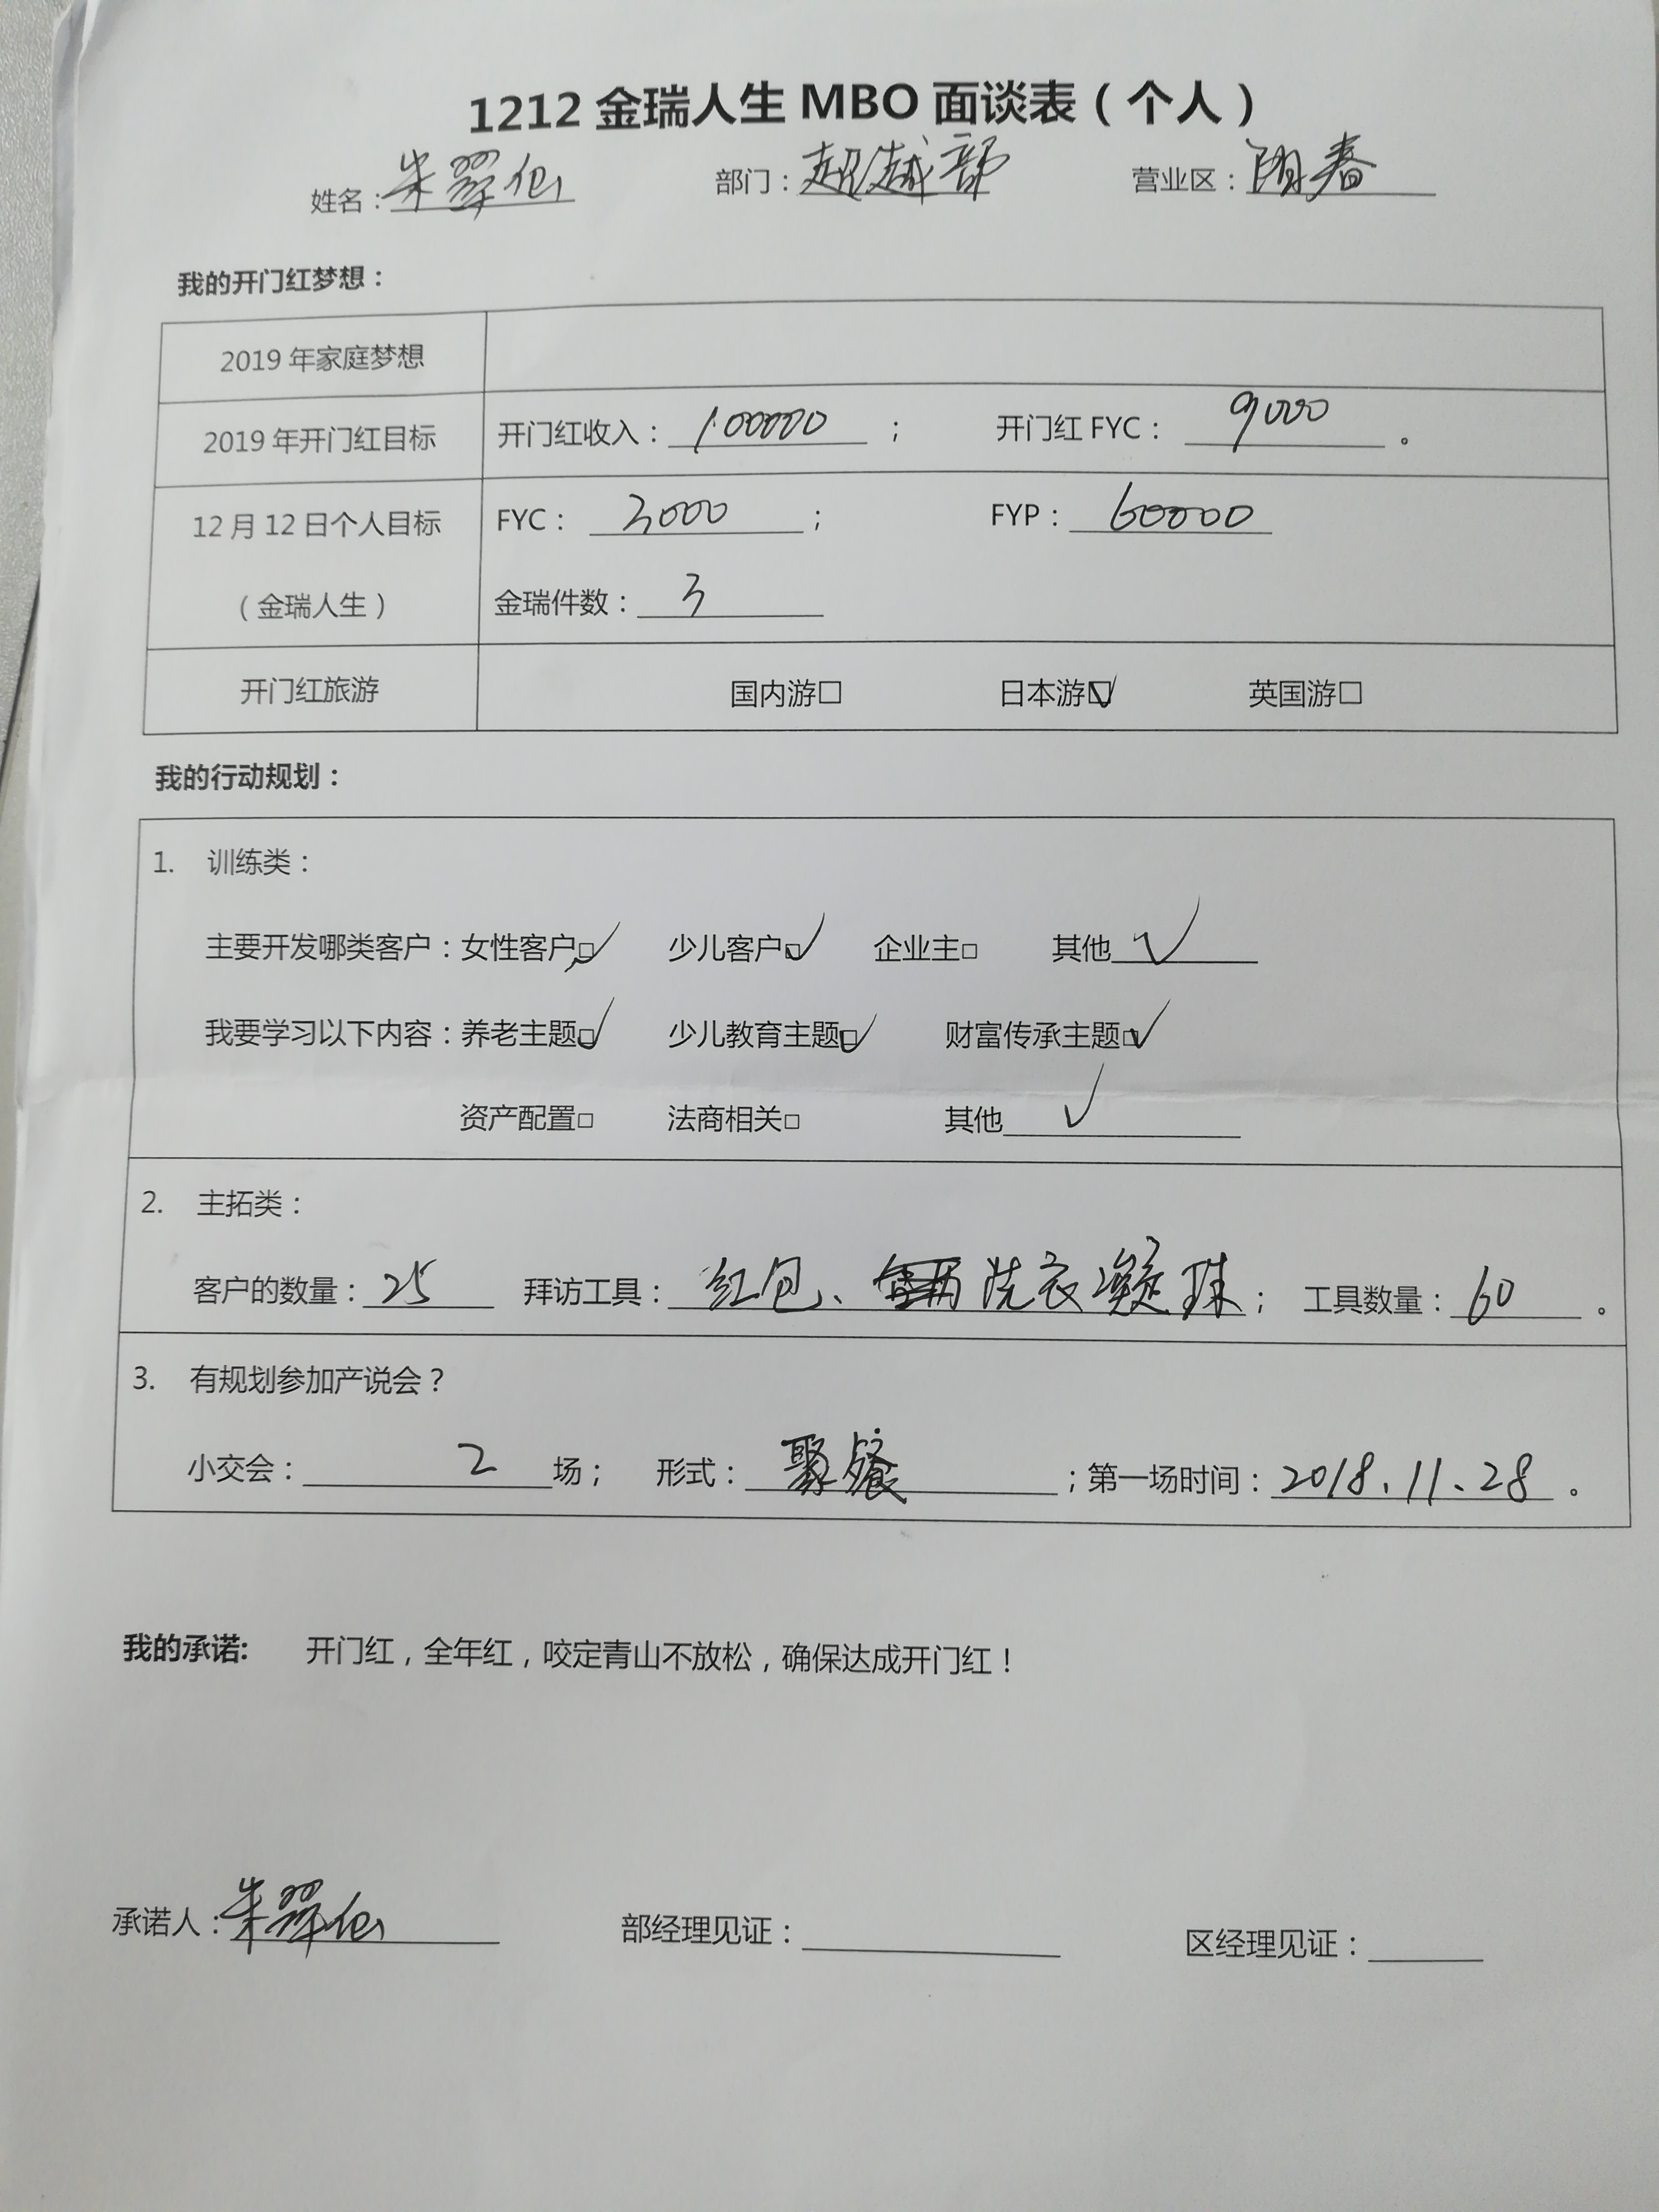 1212 金瑞人生 MBO 面谈表（个人）
姓名：朱翠仙 部门：超越部 营业区：阳春
我的开门红梦想：
2019 年家庭梦想
2019 年开门红目标 开门红收入：100000； 开门红 FYC：9000。
12 月 12 日个人目标 FYC：3000； FYP：60000
（金瑞人生） 金瑞件数：3
开门红旅游 国内游□ 日本游☑ 英国游□
我的行动规划：
1. 训练类：
主要开发哪类客户：女性客户☑ 少儿客户☑ 企业主□ 其他 ✓
我要学习以下内容：养老主题☑ 少儿教育主题☑ 财富传承主题☑
资产配置□ 法商相关□ 其他 ✓
2. 主拓类：
客户的数量：25 拜访工具：红包、洗衣凝珠； 工具数量：60。
3. 有规划参加产说会？
小交会：2场； 形式：聚餐；第一场时间：2018.11.28。
我的承诺: 开门红，全年红，咬定青山不放松，确保达成开门红！
承诺人：朱翠仙 部经理见证： 区经理见证：